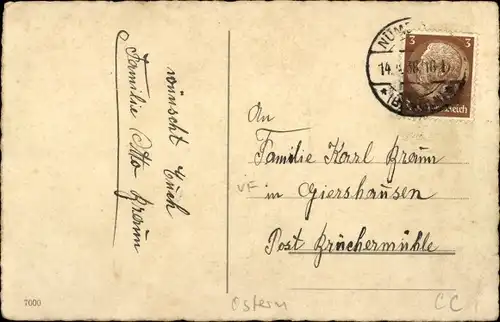 wünscht Euch
Familie Otto Braun
An
Familie Karl Braun
in Giershausen
Post Brüchermühle
VF
3 3
NÜM
14. 38.10
Reich
7000
Ostern
CC